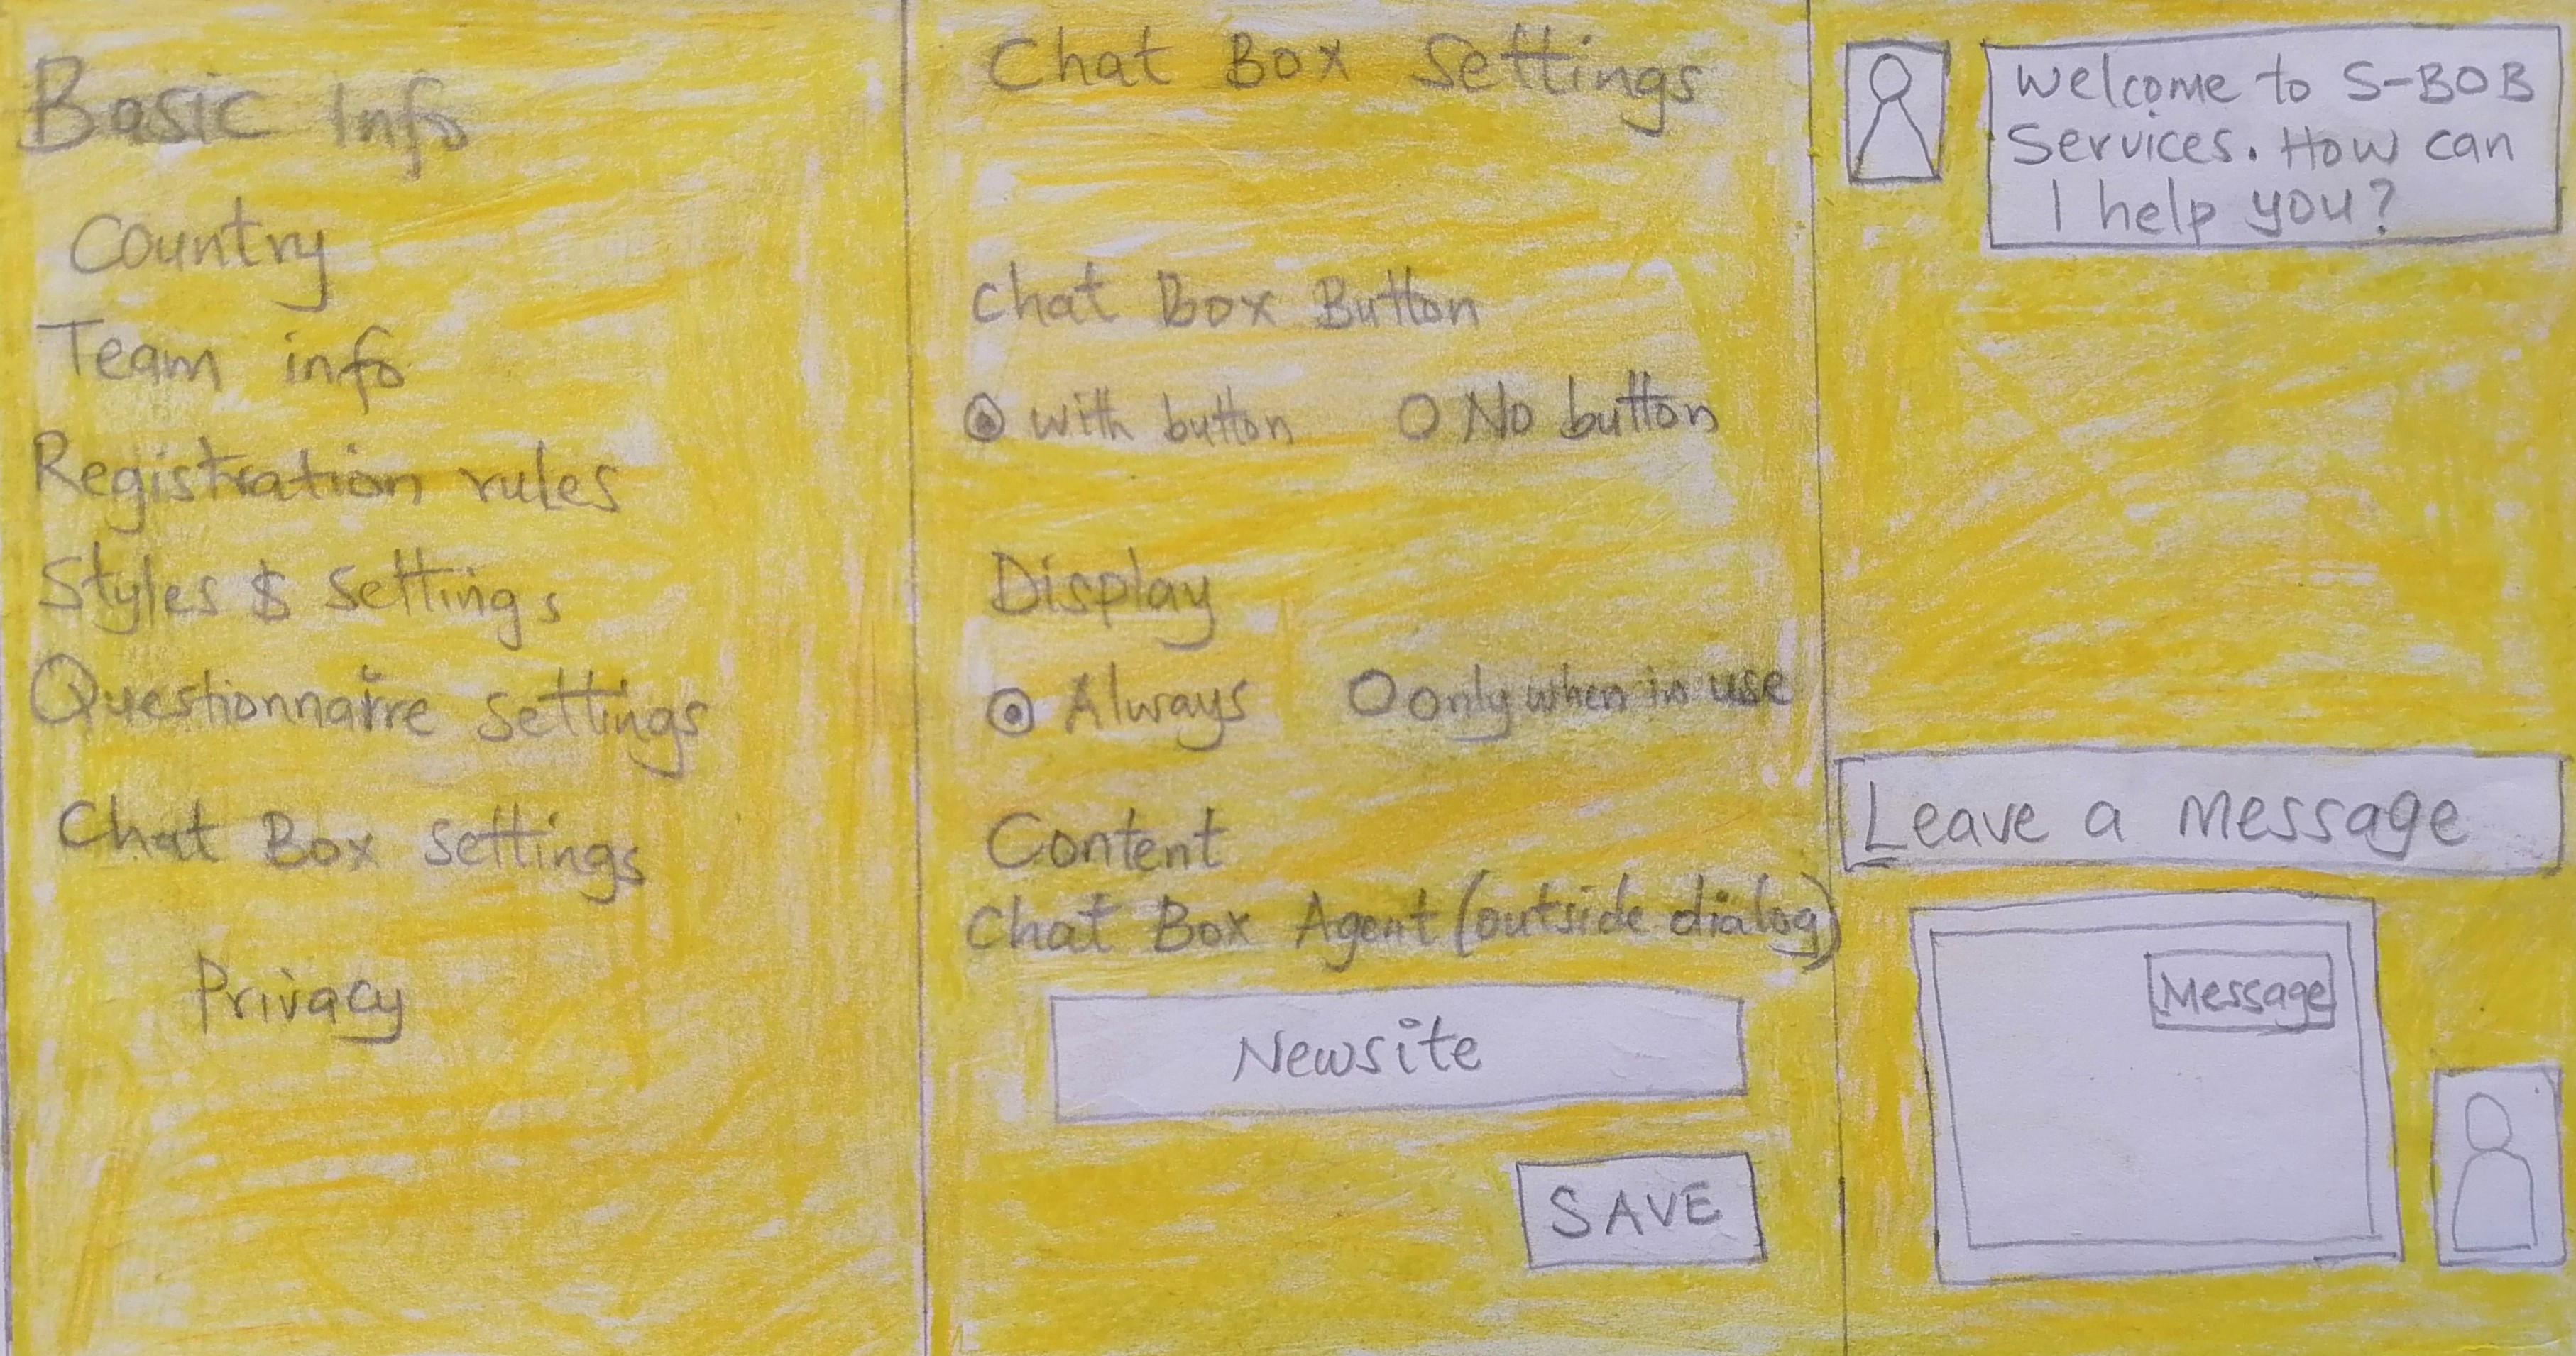 Basic Info
Country
Team info
Registration rules
Styles $ Settings
Questionnaire Settings
Chat Box Settings
Privacy
Chat Box Settings
Chat Box Button
with button No button
Display
Always only when in use
Content
Chat Box Agent (outside dialog)
Newsite
SAVE
Welcome to S-BOB
Services. How can
I help you?
Leave a Message
Message